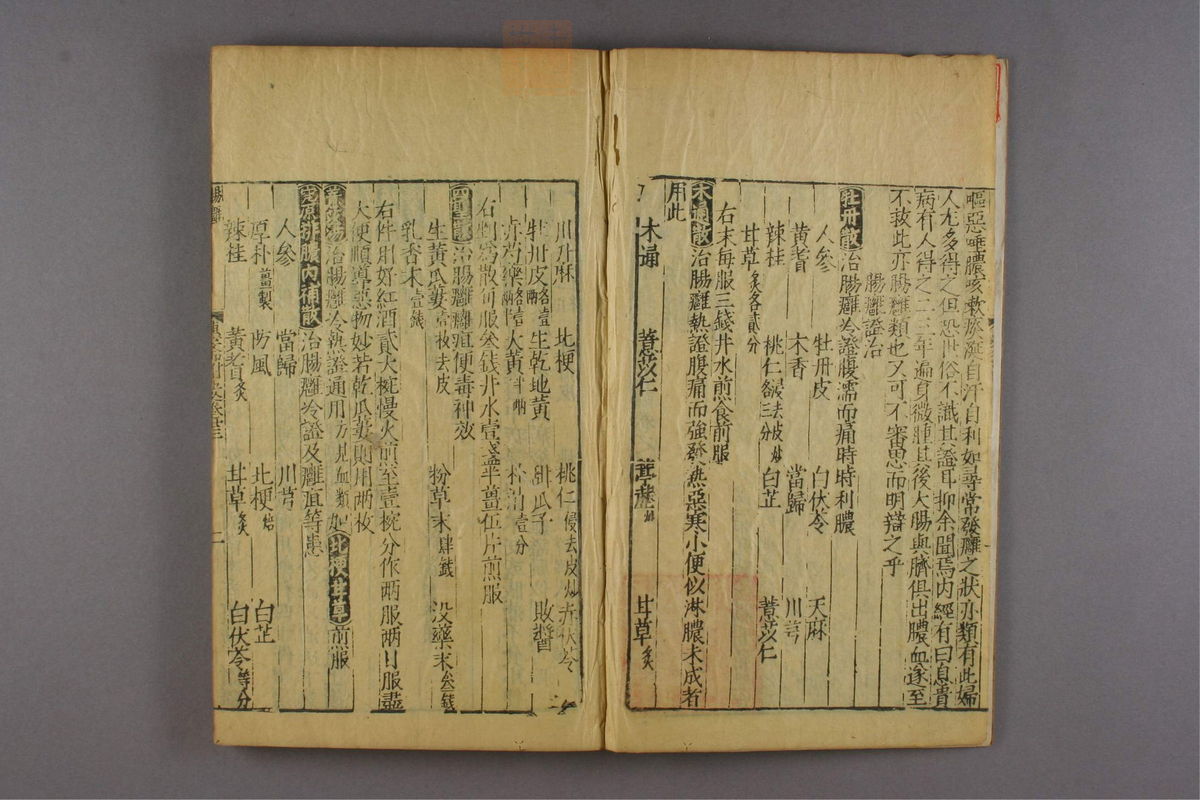 嘔惡唾膿咳嗽痰涎自汗自利如尋常發癰之狀亦類有此婦
人尤多得之但恐世俗不識其證耳抑余聞焉内經有曰息賁
病有人得之二三年遍身微腫其後大腸與臍俱出膿血遂至
不救此亦腸癰類也又可不審思而明辯之乎
腸癰證治
牡丹散 治腸癰冷證腹濡而痛時時利膿
人參 牡丹皮 白茯苓 天麻
黄耆 木香 當歸 川芎
辣桂 桃仁 浸去皮炒三分 白芷 薏苡仁
甘草 炙各貳分
右末每服三錢井水煎食前服
木通散 治腸癰熱證腹痛而強發熱惡寒小便似淋膿未成者
用此
木通 薏苡仁 葶藶 炒 甘草 炙
川升麻 北梗 桃仁 浸去皮炒 赤茯苓
牡丹皮 各壹兩 生乾地黄 甜瓜子 敗醬
赤芍藥 各壹兩 大黄 半兩 朴消 壹分
右剉爲散每服叁錢井水壹盞半薑伍片煎服
四聖散 治腸癰癰疽便毒神效
生黄瓜蔞 壹枚去皮 粉草末 肆錢 没藥末 叁錢
乳香末 壹錢
右件用好紅酒貳大椀慢火煎至壹椀分作兩服兩日服盡
大便順導惡物妙若乾瓜蔞則用兩枚
黄芪湯 治腸癰冷熱證通用方見血類如北梗甘草煎服
排膿内補散 治腸癰冷證及癰疽等患
人參 當歸 川芎
厚朴 薑製 防風 北梗 焙 白芷
辣桂 黄耆 炙 甘草 炙 白茯苓 等分
腸癰